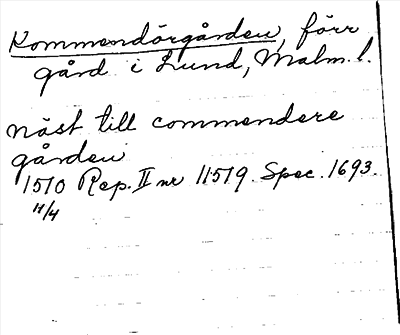 Kommendörgården, förr
gård i Lund, Malm. l.
näst till commendere
gården
1510 Rep. II nr 11519. Spec. 1693.
11/4